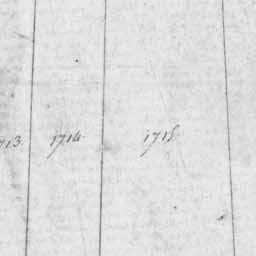 713 1714 1715